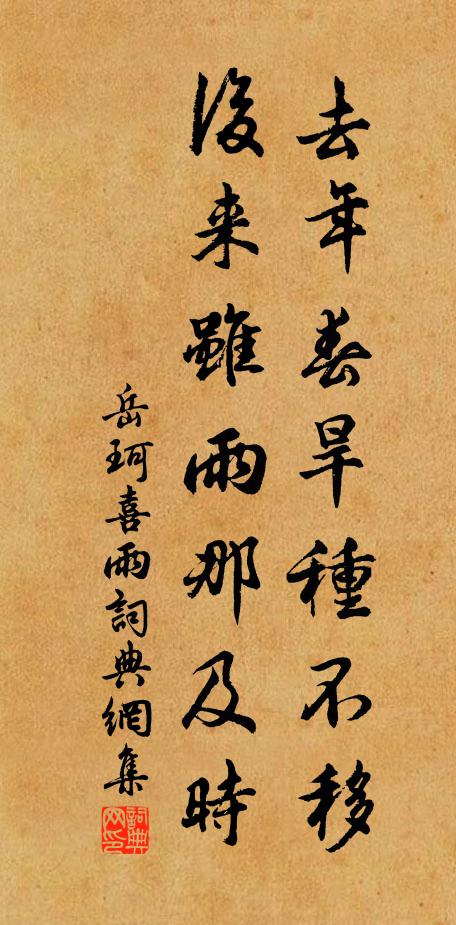 去年春旱種不移
後来雖雨那及時
岳珂喜雨詞典網集
詞典网印